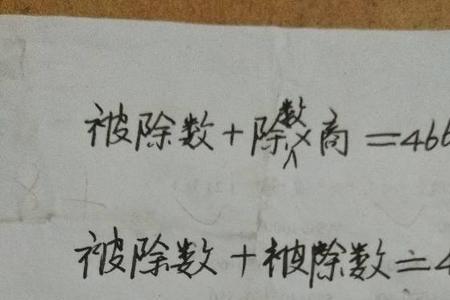 被除数+除数×商=466
被除数+被除数=4